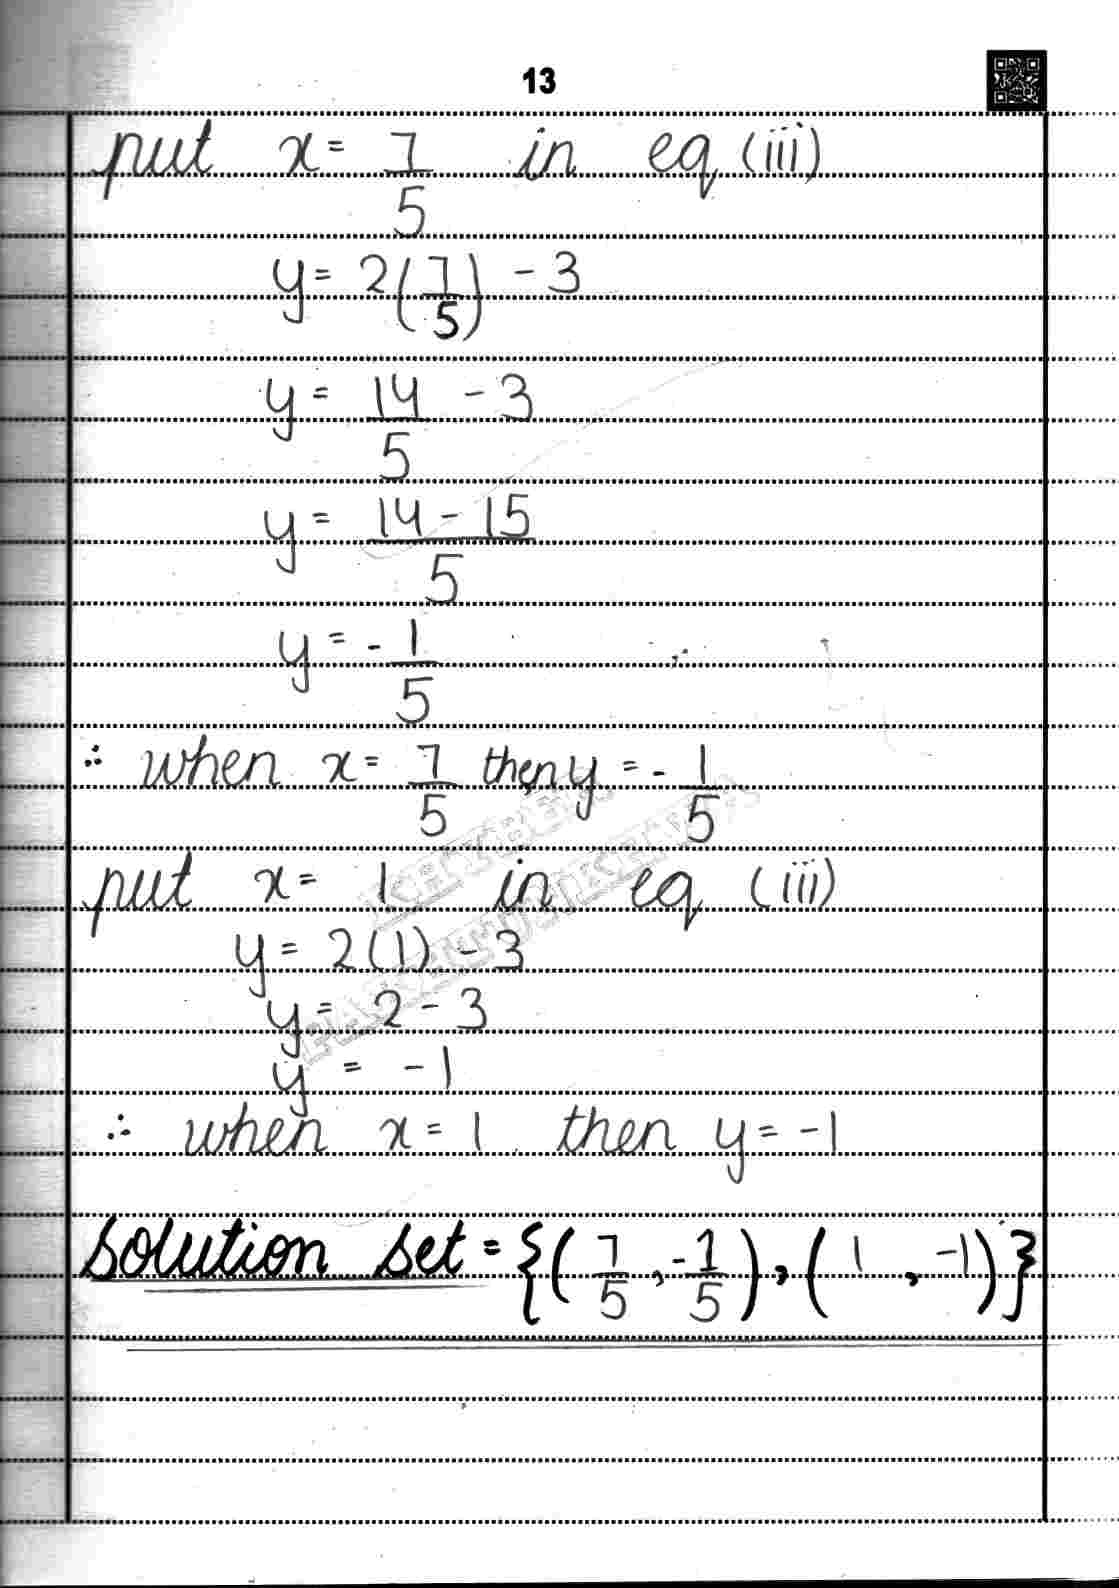 13
put x = 7/5 in eq (iii)
y = 2(7/5) - 3
y = 14/5 - 3
y = 14 - 15/5
y = - 1/5
∴ when x = 7/5 then y = - 1/5
put x = 1 in eq (iii)
y = 2(1) - 3
y = 2 - 3
y = -1
∴ when x = 1 then y = -1
Solution set = {(7/5, -1/5), (1, -1)}